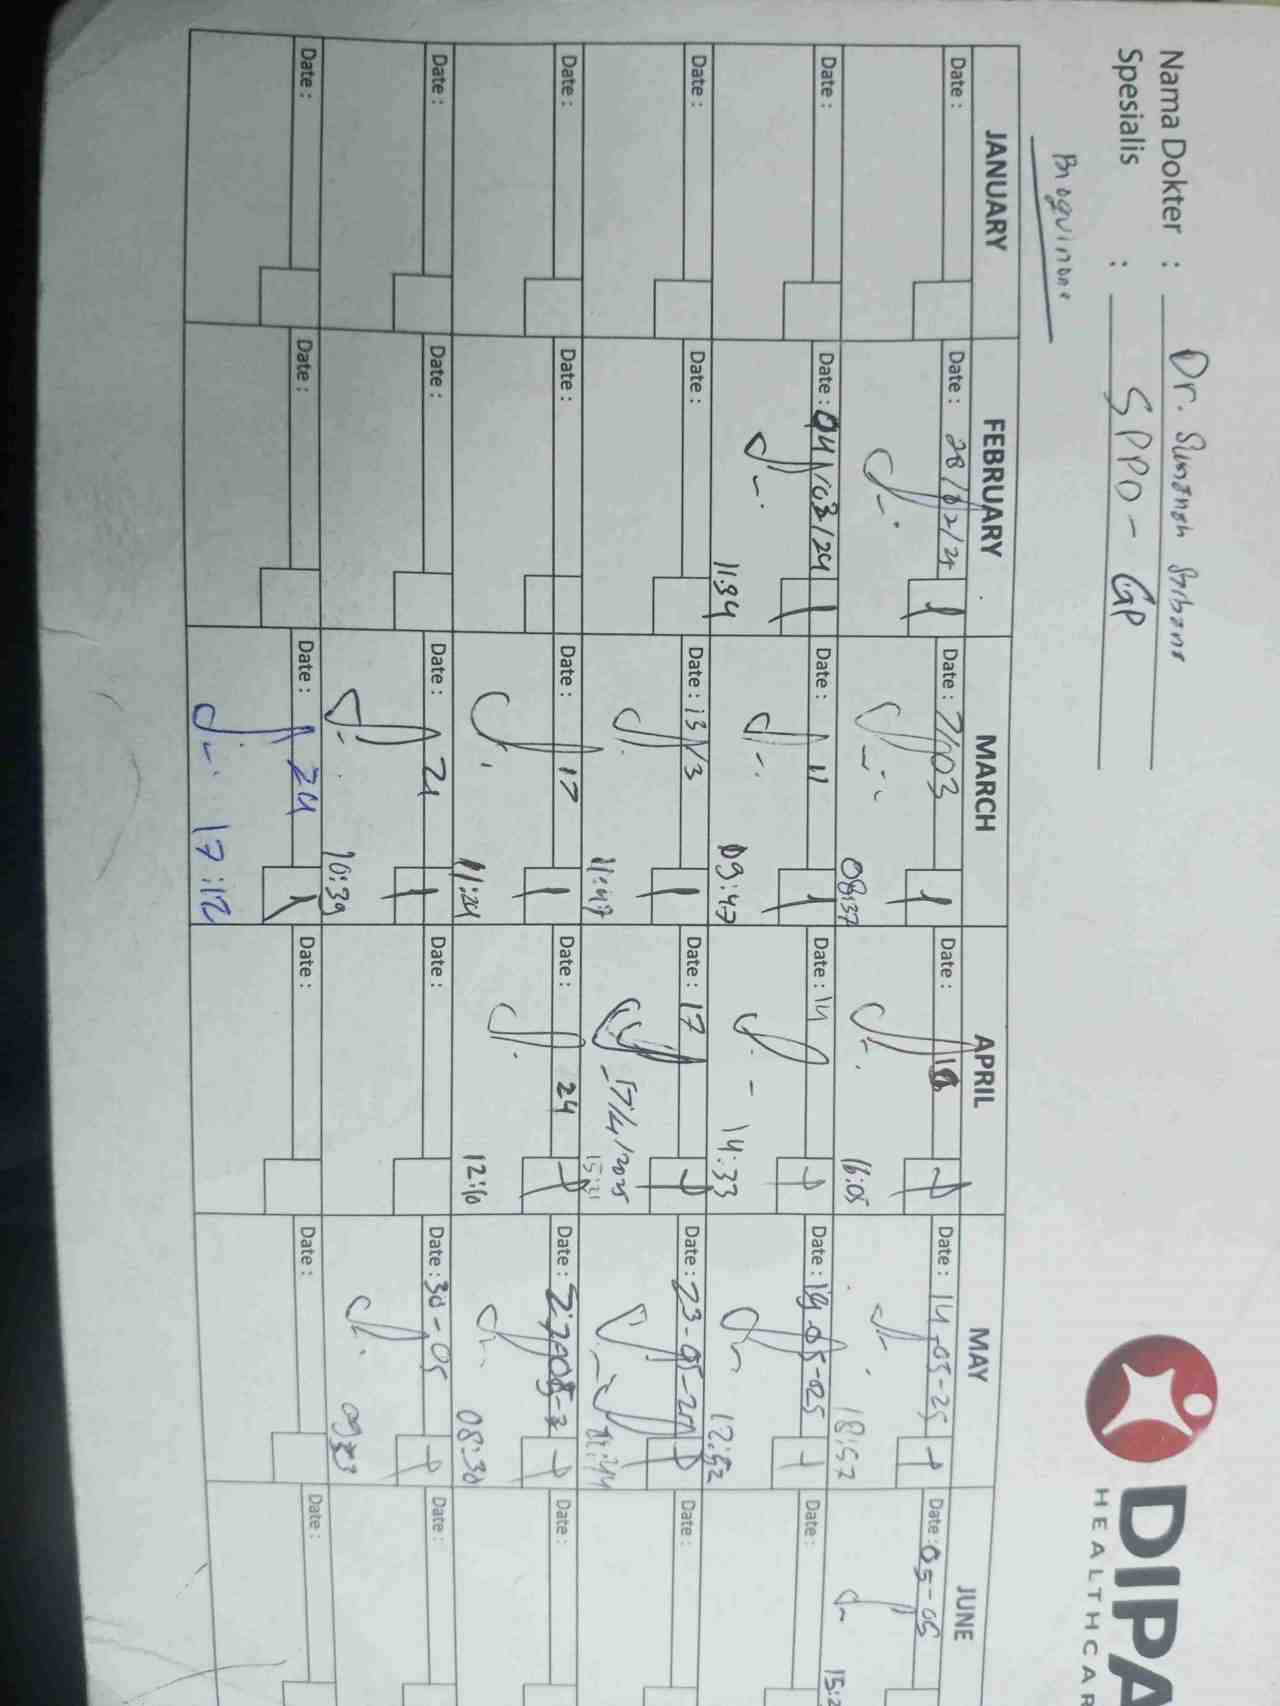 Nama Dokter : Dr.
Spesialis : SPPD - GP
DIPA
HEALTHCAR
JANUARY FEBRUARY MARCH APRIL MAY JUNE
Date : Date : 28/02/24 Date : 7/03 Date : Date : 14-05-25 Date : 05-06
08:37 16:05 18:57 15:2
Date : Date : 04/03/24 Date : 11 Date : 14 Date : 19-05-25 Date :
11:34 09:47 14:33 12:52
Date : Date : Date : 13/3 Date : 17 Date : 23-05- Date :
11:47 17/4/2025 15:21
Date : Date : Date : 17 Date : 24 Date : Date :
11:24 12:10 08:30
Date : Date : Date : 21 Date : Date : 30-05 Date :
10:39
Date : Date : Date : 24 Date : Date : Date :
17:12